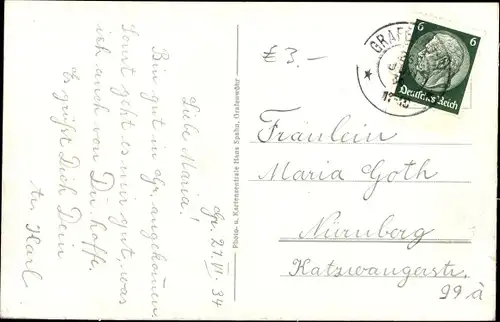 Gr. 27. VI. 34
Liebe Maria!
Bin gut in Gr. angekommen.
Sonst geht es mir gut, was
ich auch von Dir hoffe.
Es grüßt Dich Dein
Karl
Photo- u. Kartenzentrale Hans Spahn, Grafenwöhr
€ 3.-
GRAFE
6 6
Deutsches Reich
Fräulein
Maria Goth
Nürnberg
Katzwangerstr.
99 a